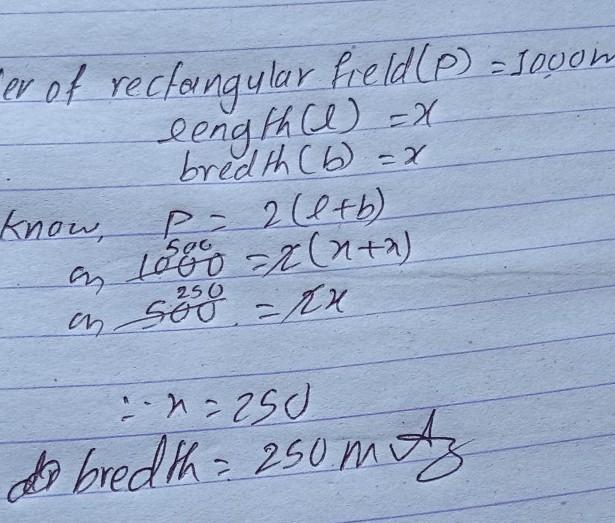 er of rectangular field(P) = 1000m
length(l) = x
bredth(b) = x
Know, P = 2(l+b)
or 1000 500 = 2(x+x)
or 500 250 = 2x
∴ x = 250
bredth = 250 m